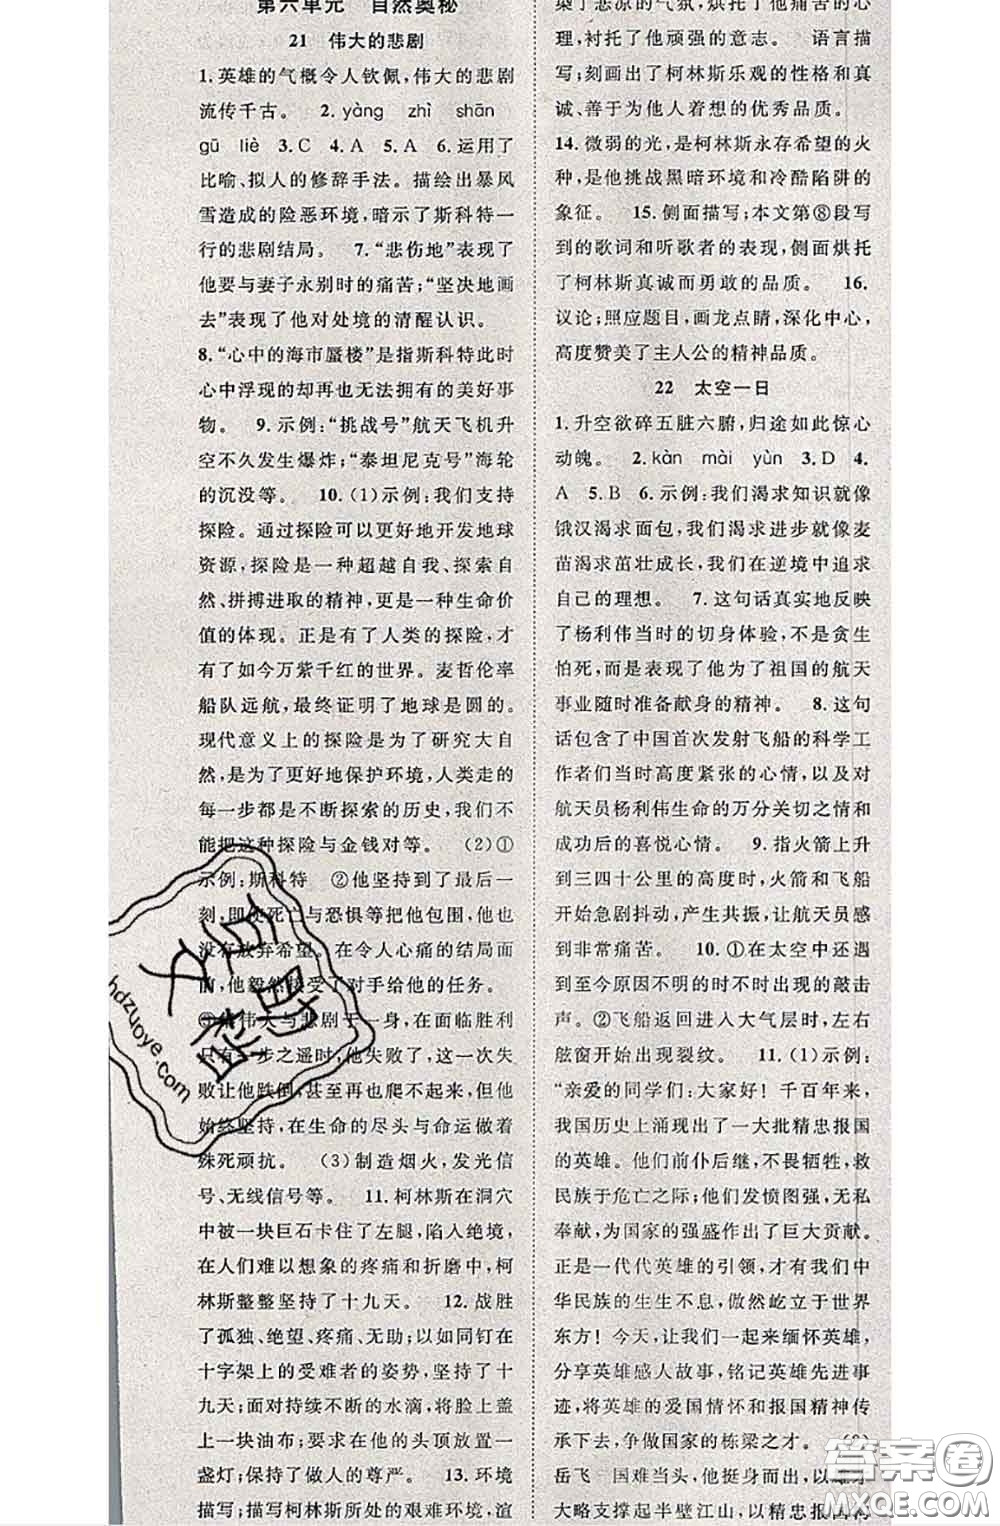 第六单元　自然奥秘
21　伟大的悲剧
1.英雄的气概令人钦佩,伟大的悲剧
流传千古。　2.yàng　zhì　shān
gū　liè　3.C　4.A　5.A　6.运用了
比喻、拟人的修辞手法。描绘出暴风
雪造成的险恶环境,暗示了斯科特一
行的悲剧结局。　7.“悲伤地”表现了
他要与妻子永别时的痛苦;“坚决地画
去”表现了他对处境的清醒认识。
8.“心中的海市蜃楼”是指斯科特此时
心中浮现的却再也无法拥有的美好事
物。　9.示例:“挑战号”航天飞机升
空不久发生爆炸;“泰坦尼克号”海轮
的沉没等。　10.(1)示例:我们支持
探险。通过探险可以更好地开发地球
资源,探险是一种超越自我、探索自
然、拼搏进取的精神,更是一种生命价
值的体现。正是有了人类的探险,才
有了如今万紫千红的世界。麦哲伦率
船队远航,最终证明了地球是圆的。
现代意义上的探险是为了研究大自
然,是为了更好地保护环境,人类走的
每一步都是不断探索的历史,我们不
能把这种探险与金钱对等。　(2)①
示例:斯科特　②他坚持到了最后一
刻,即使死亡与恐惧等把他包围,他也
没有放弃希望。在令人心痛的结局面
前,他毅然接受了对手给他的任务。
③集伟大与悲剧于一身,在面临胜利
只有一步之遥时,他失败了,这一次失
败让他跌倒,再也爬不起来。但他
始终坚持,在生命的尽头与命运做着
殊死顽抗。　(3)制造烟火,发光信
号、无线信号等。　11.柯林斯在洞穴
中被一块巨石卡住了左腿,陷入绝境,
在人们难以想象的疼痛和折磨中,柯
林斯整整坚持了十九天。　12.战胜
了孤独、绝望、疼痛、无助;以如同钉在
十字架上的受难者的姿势,坚持了十
九天;面对持续不断的水滴,将脸上盖
上一块油布;要求在他的头顶放置一
盏灯;保持了做人的尊严。　13.环境
描写;描写柯林斯所处的艰难环境,渲
染了悲凉的气氛,烘托了他痛苦的心
理,衬托了他顽强的意志。　语言描
写;刻画出了柯林斯乐观的性格和真
诚、善于为他人着想的优秀品质。
14.微弱的光,是柯林斯永存希望的火
种,是他挑战黑暗环境和冷酷陷阱的
象征。　15.侧面描写;本文第⑧段写
到的歌词和听歌者的表现,侧面烘托
了柯林斯真诚而勇敢的品质。　16.
议论;照应题目,画龙点睛,深化中心,
高度赞美了主人公的精神品质。
22　太空一日
1.升空欲碎五脏六腑,归途如此惊心
动魄。　2.kàn　mài　yùn　3.D　4.
A　5.B　6.示例:我们渴求知识就像
饿汉渴求面包,我们渴求进步就像麦
苗渴求茁壮成长,我们在逆境中追求
自己的理想。　7.这句话真实地反映
了杨利伟当时的切身体验,不是贪生
怕死,而是表现了他为了祖国的航天
事业随时准备献身的精神。　8.这句
话包含了中国首次发射飞船的科学工
作者们当时高度紧张的心情,以及对
航天员杨利伟生命的万分关切之情和
成功后的喜悦心情。　9.指火箭上升
到三四十公里的高度时,火箭和飞船
开始急剧抖动,产生共振,让航天员感
到非常痛苦。　10.①在太空中还遇
到至今原因不明的时不时出现的敲击
声。②飞船返回进入大气层时,左右
舷窗开始出现裂纹。　11.(1)示例:
“亲爱的同学们:大家好!千百年来,
我国历史上涌现出了一大批精忠报国
的英雄。他们前仆后继,不畏牺牲,救
民族于危亡之际;他们发愤图强,无私
奉献,为国家的强盛作出了巨大贡献。
正是一代代英雄的引领,才有我们中
华民族的生生不息,傲然屹立于世界
东方!今天,让我们一起来缅怀英雄,
分享英雄感人故事,铭记英雄先进事
迹,将英雄的爱国情怀和报国精神传
承下去,争做国家的栋梁之才。　(2)
岳飞　国难当头,他挺身而出,以雄才
大略支撑起半壁江山,以精忠报国构
hdzuoye.com
答案圈
MXQE.COM